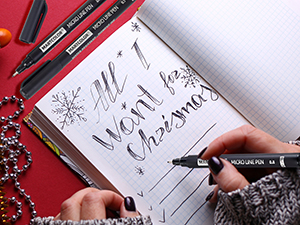 MICRO LINE PEN
MICRO LINE PEN
All I
want for
Chrismas
MICRO LINE PEN